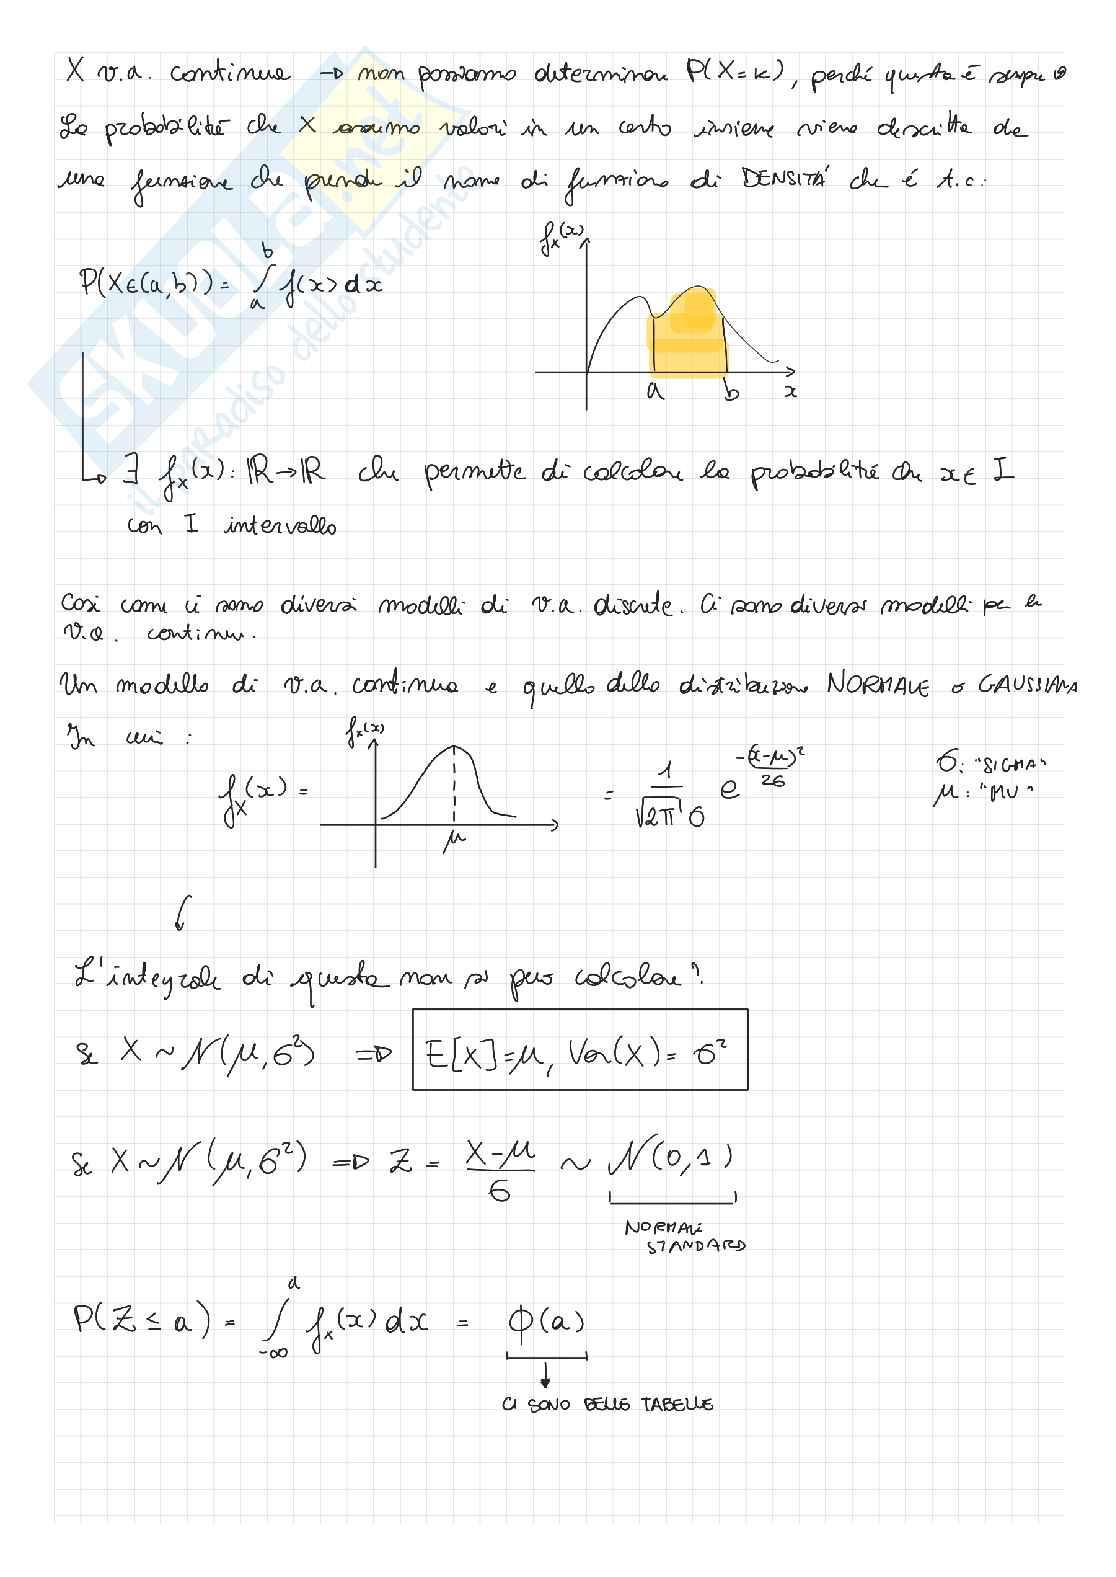 X v.a. continua → non possiamo determinare P(X=k), perché questa è sempre 0
La probabilità che X assuma valori in un certo insieme viene descritta da
una funzione che prende il nome di funzione di DENSITÀ che è t.c.:
P(X∈(a,b)) = ∫_a^b f(x) dx
f_X(x)
a b x
∃ f_X(x): ℝ→ℝ che permette di calcolare la probabilità che x∈ I
con I intervallo
Così come ci sono diversi modelli di v.a. discrete. Ci sono diversi modelli per le
v.a. continue.
Un modello di v.a. continua e quello della distribuzione NORMALE o GAUSSIANA
In cui :
f_X(x)
f_X(x) = = 1/(√2π σ) e^(-(x-μ)²/2σ)
μ
σ: "SIGMA"
μ: "MU"
L'integrale di questa non si può calcolare!
Se X ~ N(μ,σ²) ⇒ E[X]=μ, Var(X)= σ²
Se X ~ N(μ,σ²) ⇒ Z = (X-μ)/σ ~ N(0,1)
NORMALE
STANDARD
P(Z ≤ a) = ∫_-∞^a f_X(x) dx = Φ(a)
CI SONO DELLE TABELLE
SKUOLA.net
il paradiso dello studente